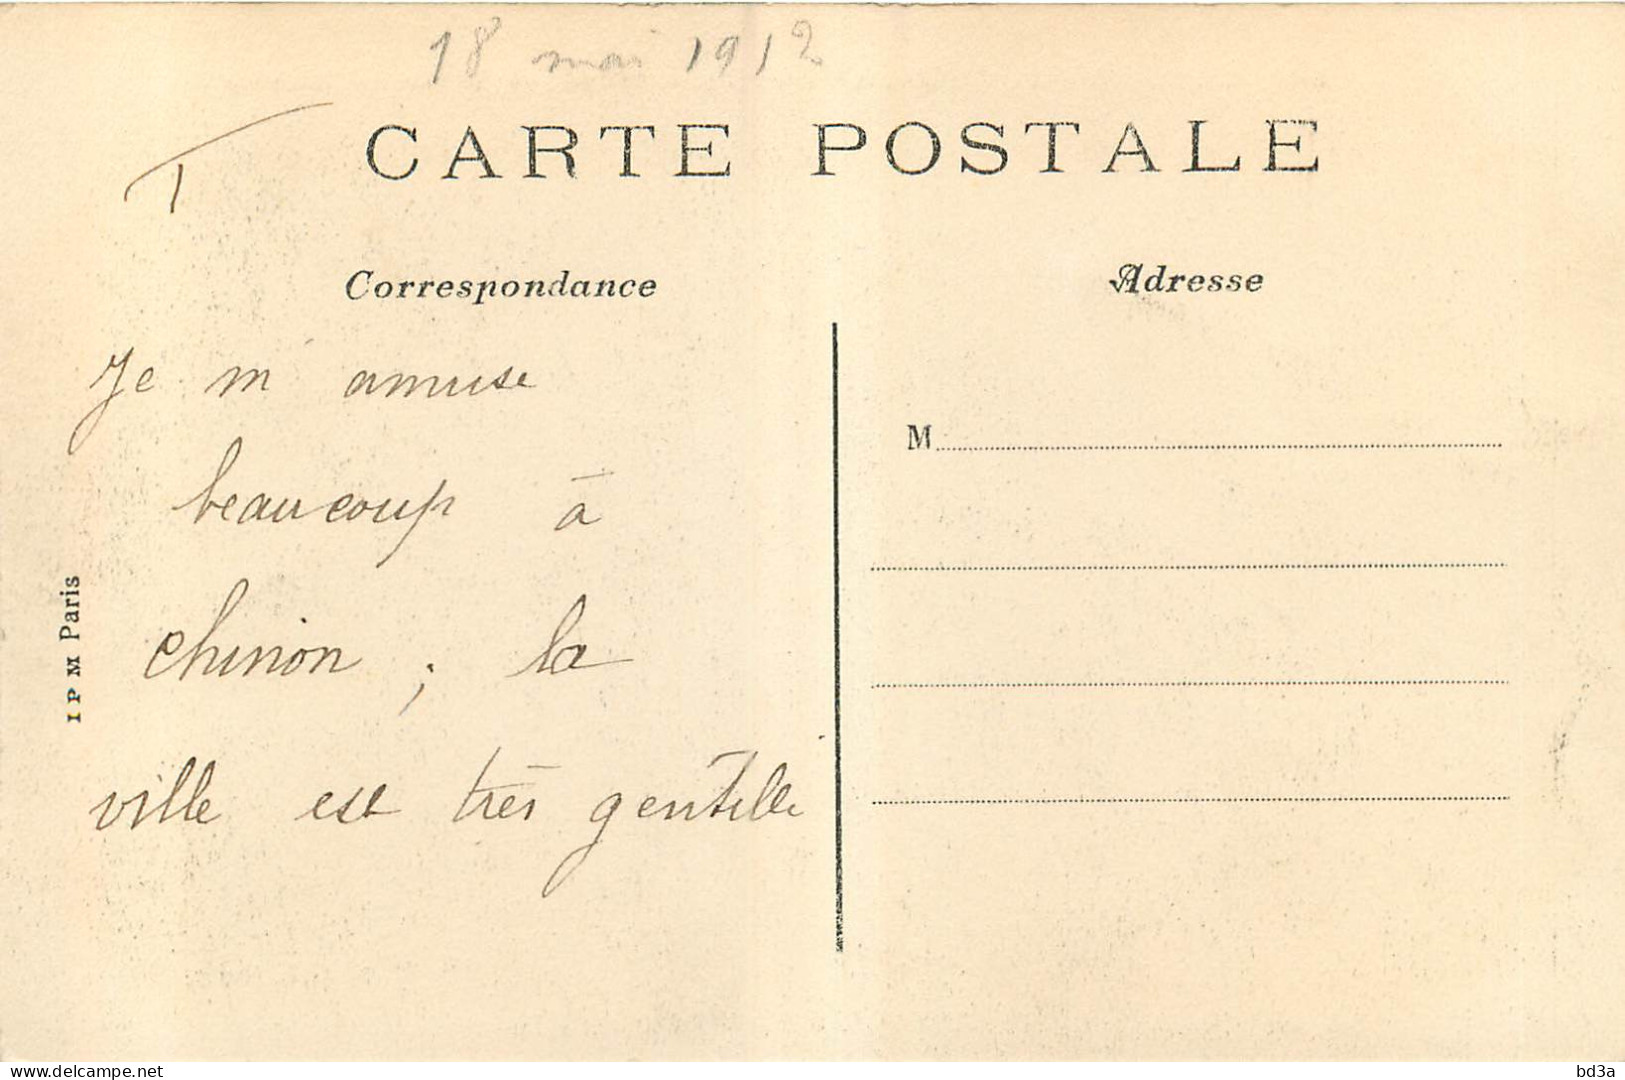 18 mai 1912
CARTE POSTALE
Correspondance
Adresse
Je m amuse
beaucoup à
chinon ; la
ville est très gentille
M
I P M Paris
delcampe.net
bd3a